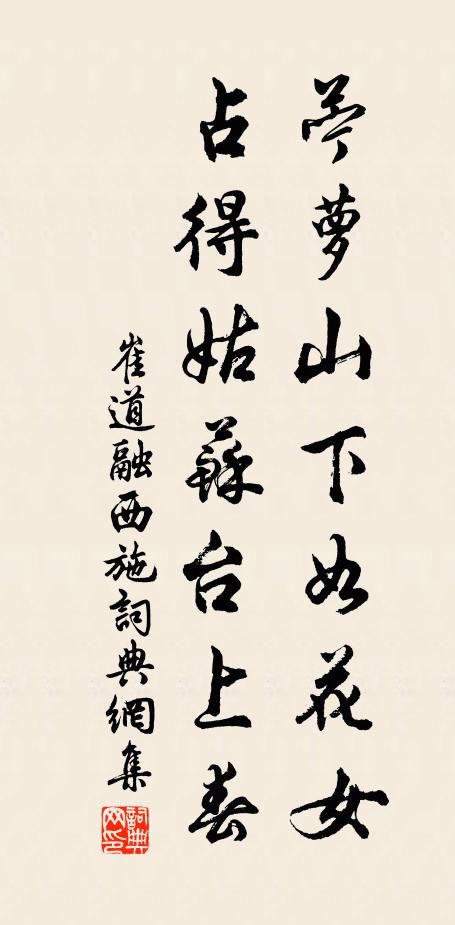 苎萝山下如花女
占得姑蘇台上春
崔道融西施詞典網集
詞典网印